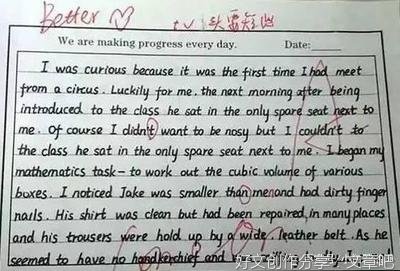 Better
tv 头要短出
We are making progress every day. Date:
I was curious because it was the first time I had meet
from a circus. Luckily for me. the next morning after being
introduced to the class he sat in the only spare seat next to
me. Of course I didn't want to be nosy but I couldn't to
the class he sat in the only spare seat next to me. I began my
mathematics task- to work out the cubic volume of various
boxes. I noticed Jake was smaller than me nand had dirty finger
nails. His shirt was clean but had been repaired, in many places
and his trousers were hold up by a wide leather belt. As he
seemed to have no handkerchief and
好文创作分享人文章吧